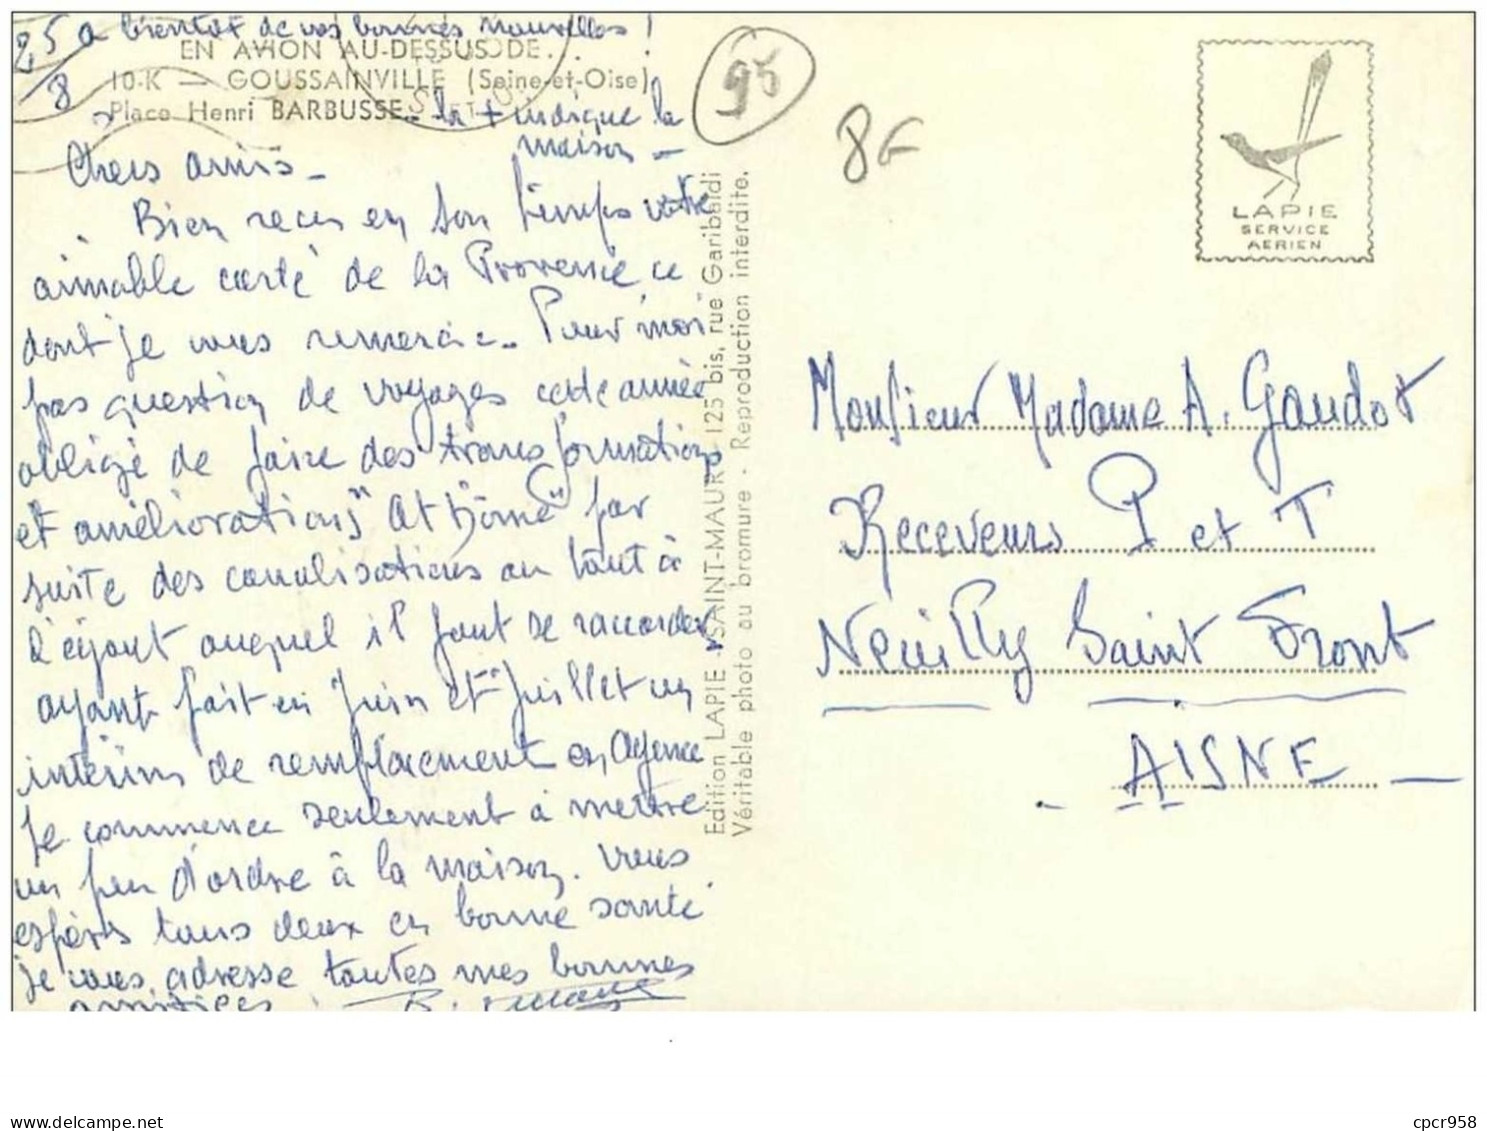 25
8
a bientot de vos bonnes nouvelles !
EN AVION AU-DESSUS DE...
10-K — GOUSSAINVILLE (Seine-et-Oise)
Place Henri BARBUSSE.
la + indique la
maison —
Chers amis —
Bien reçu en son temps votre
aimable carte de la Provence ce
dont je vous remercie. Pour moi
pas question de voyages cette année
obligé de faire des transformations
et améliorations "at home" par
suite des canalisations au tout à
l'égout auquel il faut se raccorder
ayant fait en Juin et Juillet un
intérim de remplacement en Agence
je commence seulement à mettre
un peu d'ordre à la maison. Vous
espérés tous deux en bonne santé
je vous adresse toutes mes bonnes
amitiés.
Edition LAPIE - SAINT-MAUR - 125 bis, rue Garibaldi
Véritable photo au bromure - Reproduction interdite.
95
8F
LAPIE
SERVICE
AERIEN
Monsieur Madame A. Gaudot
Receveurs P et T
Neuilly Saint Front
AISNE
cpcr958